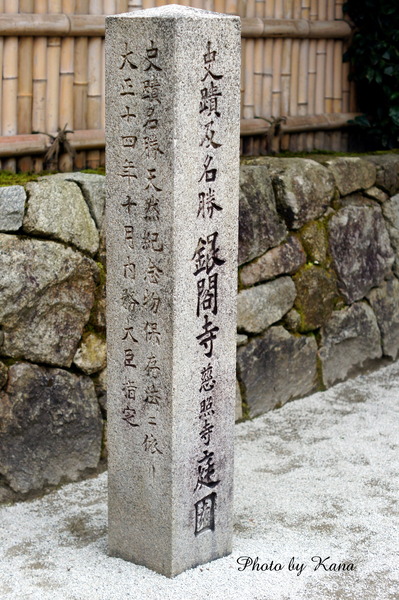 史蹟及名勝 銀閣寺 慈照寺 庭園
史蹟名勝天然紀念物保存法ニ依リ
大正十四年十月内務大臣指定
Photo by Kana